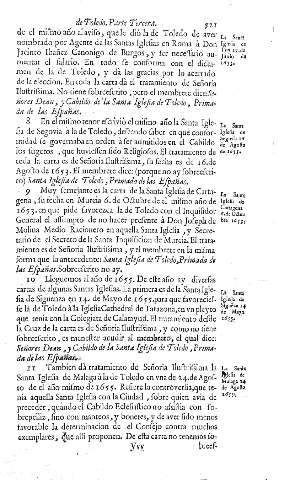 de Toledo. Parte Tercera. 521
de el mismo año al aviso, que le diò la de Toledo de aver
nombrado por Agente de las Santas Iglesias en Roma à Don
Jacinto Ibañez Canonigo de Burgos, y ser necessario au-
mentar el salario. En todo se conforma con el dicta-
men de la de Toledo, y dà las gracias por lo acerado de
la eleccion. En toda la carta dà el tratamiento de Señoria
Ilustrissima. No tiene sobrescrito, pero el membrete dize: Se-
ñores Dean, y Cabildo de la Santa Iglesia de Toledo, Prima-
da de las Españas.
8 En el mismo tenor escriviò el mismo año la Santa Igle-
sia de Segovia à la de Toledo, deseando saber en què confor-
midad se governaba en orden à ser admitidos en el Cabildo
los sugetos, que huviessen sido Religiosos. El tratamiento de
toda la carta es de Señoria Ilustrissima, su fecha es de 16. de
Agosto de 1653. El membrete dice: (porque no ay sobrescri-
to) Santa Iglesia de Toledo, Primada de las Españas.
9 Muy semejante es la carta de la Santa Iglesia de Carta-
gena, su fecha en Murcia 6. de Octubre de el mismo año de
1653. en que pide favorezca la de Toledo con el Inquisidor
General el assumpto de no hacer presente à Don Joseph de
Molina Medio Racionero en aquella Santa Iglesia, y Secre-
tario de el Secreto de la Santa Inquisicion de Murcia. El trata-
miento es de Señoria Ilustrissima, y el membrete en la misma
forma que la antecedente: Santa Iglesia de Toledo, Primada de
las Españas. Sobrescrito no ay.
10 Lleguemos al año de 1655. De este año ay diversas
cartas de algunas Santas Iglesias. La primera es de la Santa Igle-
sia de Siguenza en 14. de Mayo de 1655. para que favorecies-
se la de Toledo à la Iglesia Cathedral de Tarazona, en un pleyto
que tenia con la Colegiata de Calatayud. El tratamiento desde
la Cruz de la carta es de Señoria Ilustrissima, y como no tiene
sobrescrito, es menester acudir al membrete, el qual dice:
Señores Dean, y Cabildo de la Santa Iglesia de Toledo, Prima-
da de las Españas.
11 Tambien dà tratamiento de Señoria Ilustrissima la
Santa Iglesia de Malaga à la de Toledo en una de 24. de Agos-
to de el año mismo de 1655. Refiere la controversia, que te-
nia aquella Santa Iglesia con la Ciudad, sobre quien avia de
preceder, quando el Cabildo Eclesiastico no assistia con so-
brepelliz, sino con manteos, y bonetes, y de aver sido menos
favorable la determinacion de el Consejo contra muchos
exemplares, que alli proponen. De esta carta no tenemos so-
Vvv
bres-
La Santa
Iglesia de
1653.
La Santa
Iglesia de
Segovia 16
de Agosto
de 1653.
La Santa
Iglesia de
Cartagena
6. de Octu-
bre de
1653.
La Santa
Iglesia de
Siguenza 14
de Mayo
1655.
La Santa
Iglesia de
Malaga 24
de Agosto
1655.